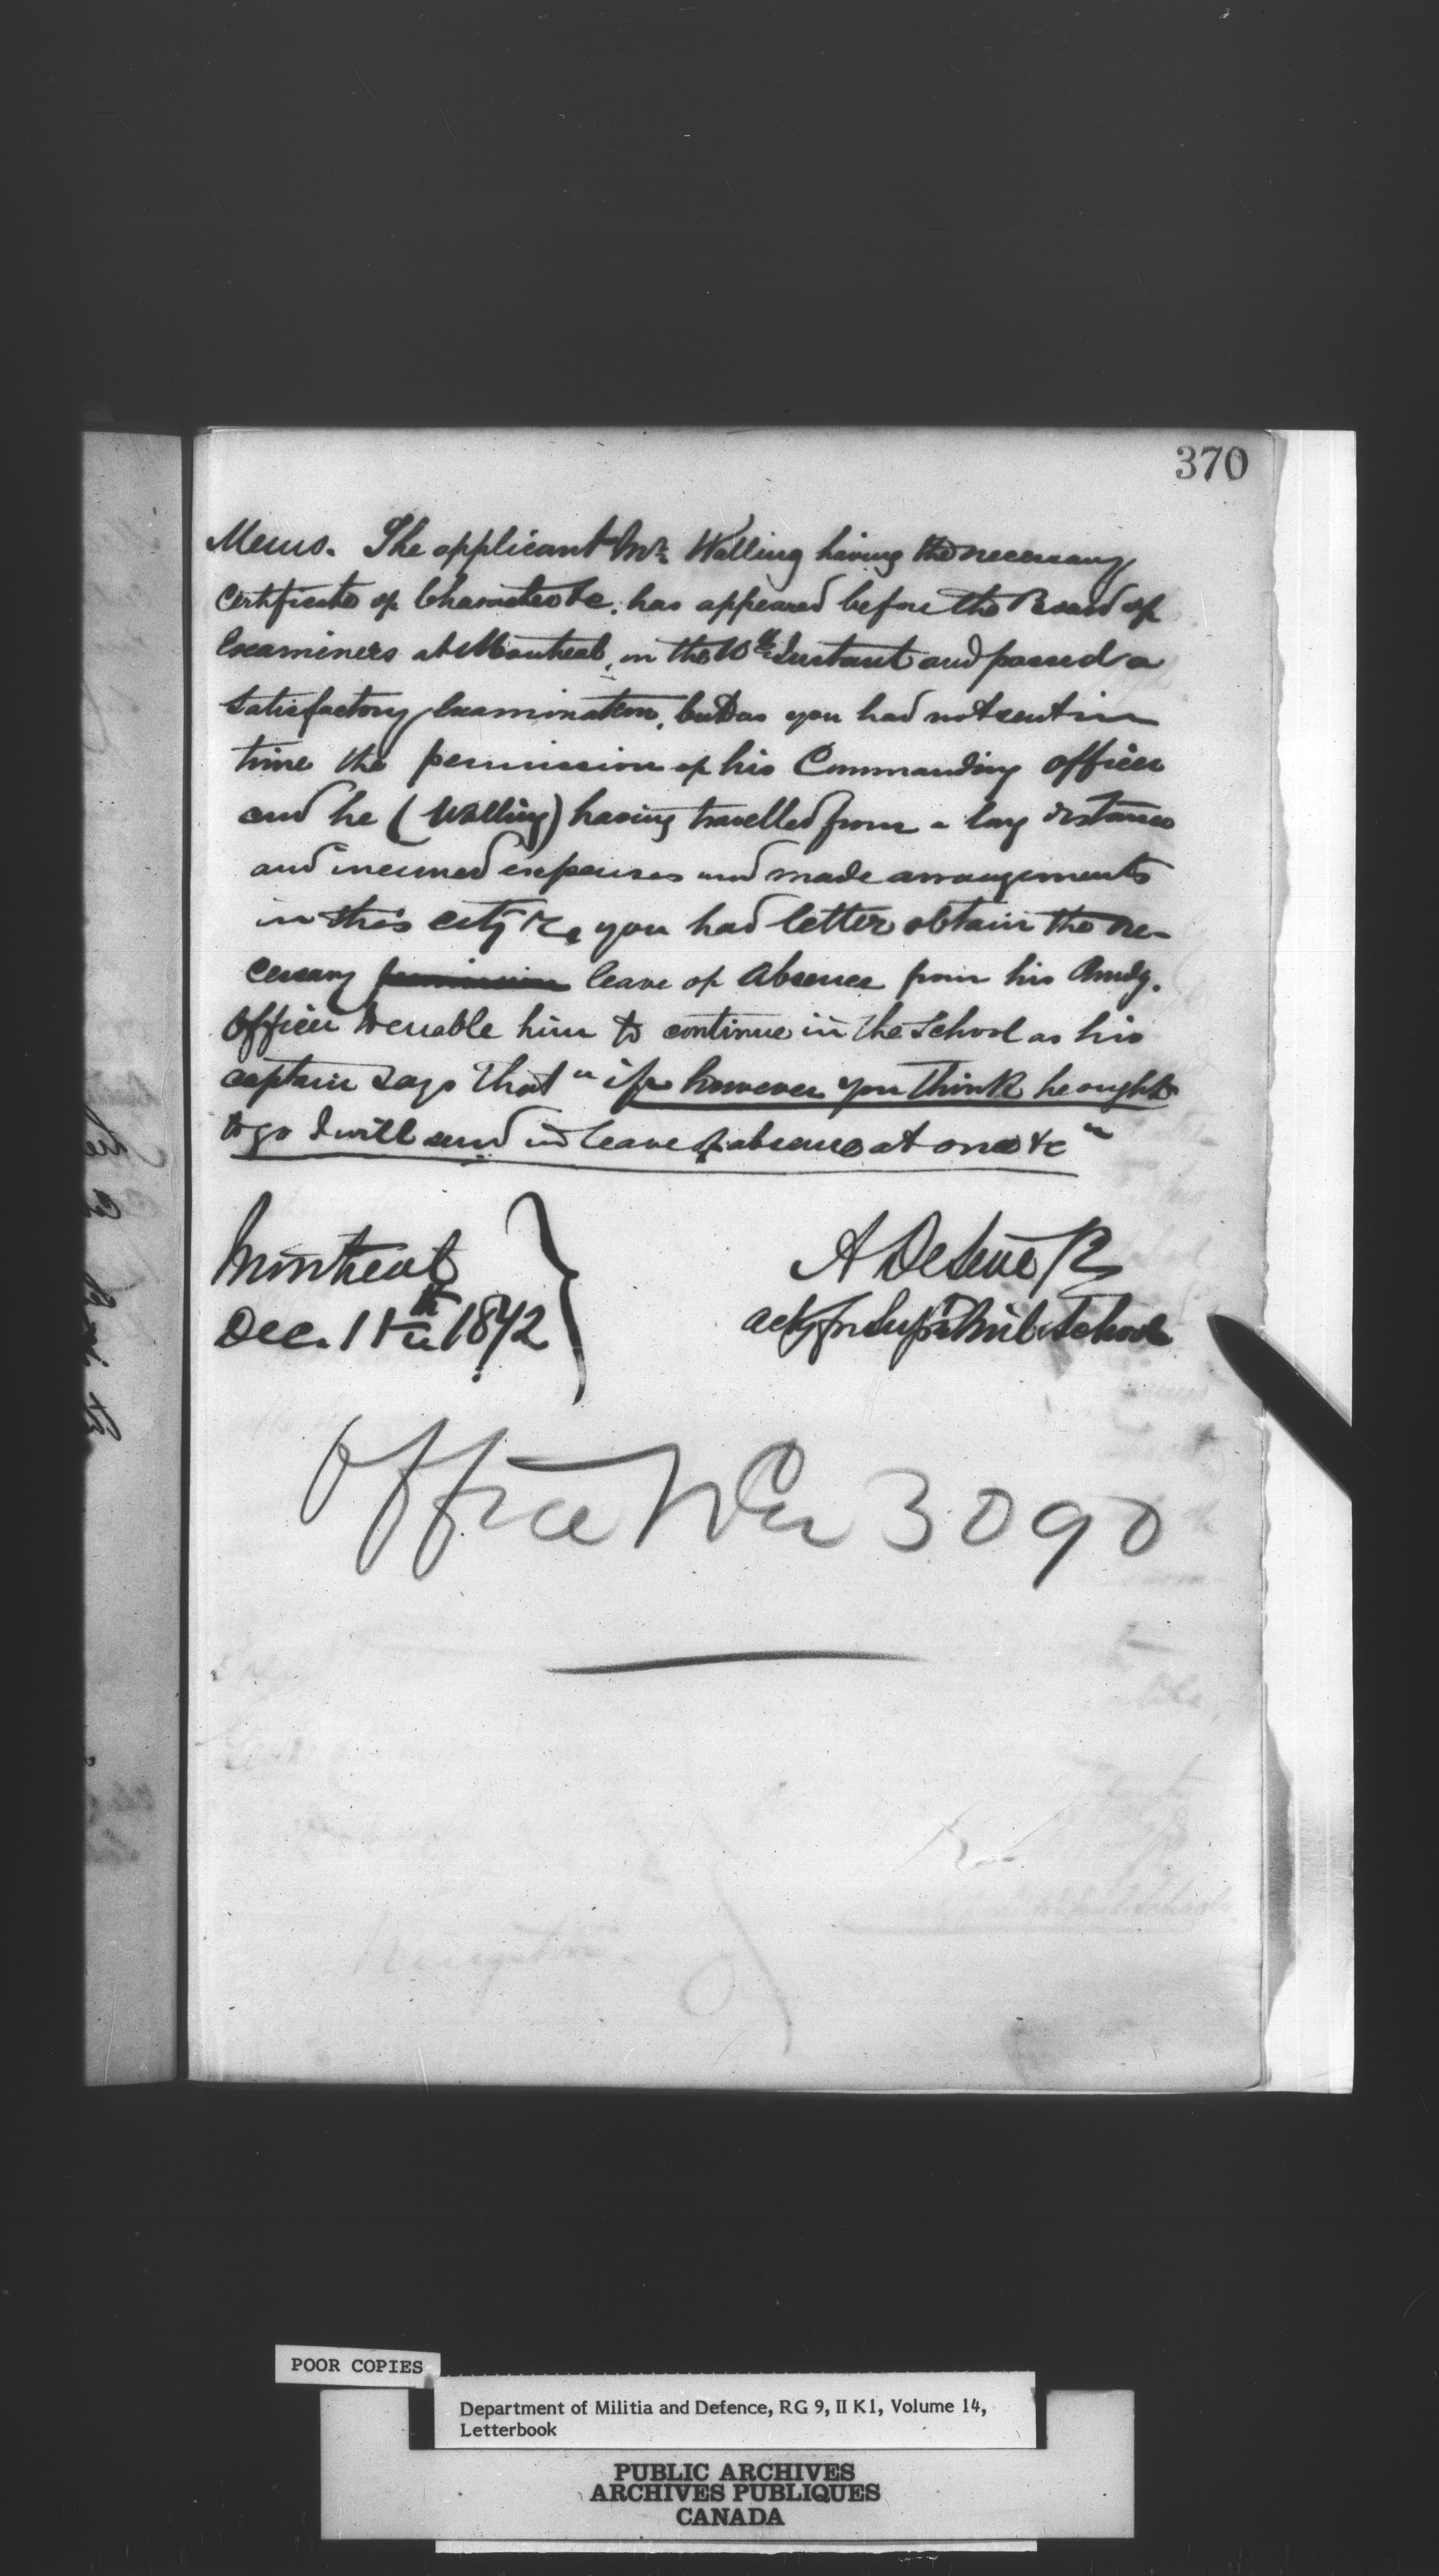 370
Memo. The applicant Mr. Walling having the necessary
Certificate of Character &c. has appeared before the Board of
Examiners at Montreal, on the 10th Instant and passed a
Satisfactory Examination, but as you had not sent in
time the permission of his Commanding officer
and he (Walling) having travelled from a long distance
and incurred expenses and made arrangements
in this city &c, you had better obtain the ne-
cessary permission leave of absence from his Comdg.
Officer to enable him to continue in the School as his
captain says that "if however you think he ought
to go I will send in leave of absence at once &c"
Montreal
Dec. 11th 1872
A
actg for Supt Mil School
Office No 3090
POOR COPIES
Department of Militia and Defence, RG 9, II K1, Volume 14,
Letterbook
PUBLIC ARCHIVES
ARCHIVES PUBLIQUES
CANADA